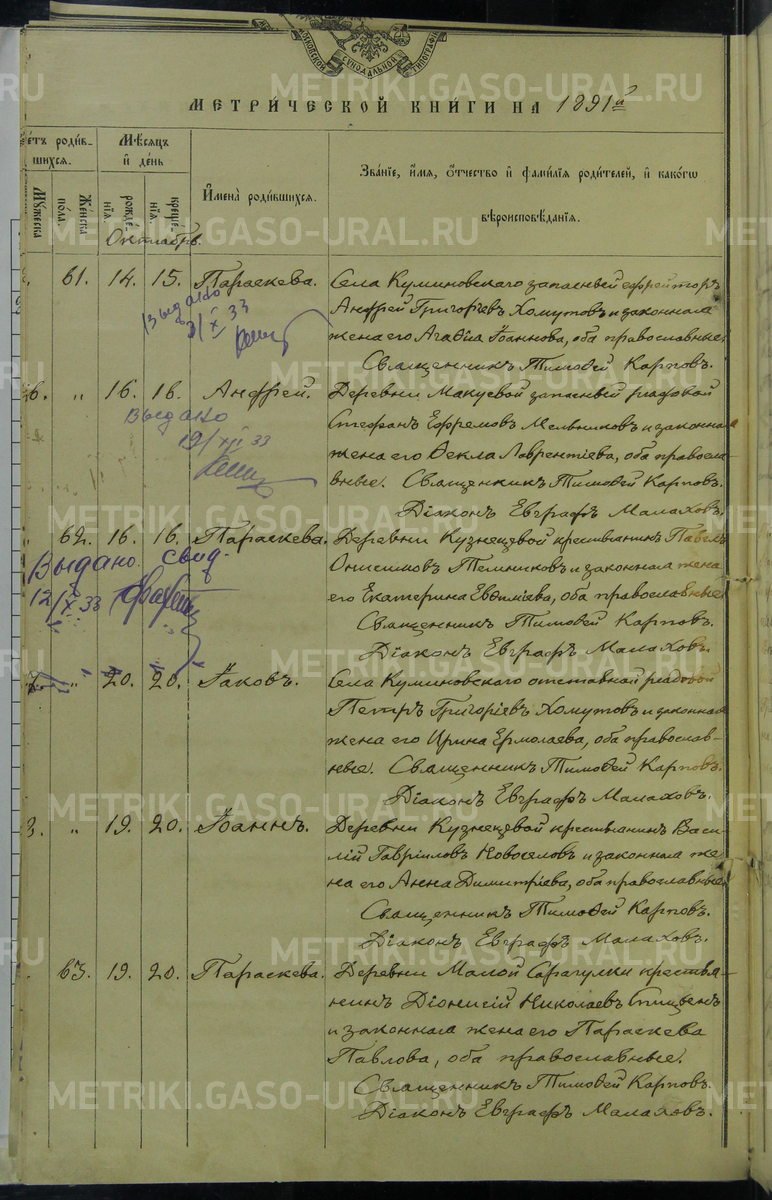 МОСКОВСКОЙ СѴНОДАЛЬНОЙ ТИПОГРАФІИ
METRIKI.GASO-URAL.RU
МЕТРИ́ЧЕСКОЙ КНИ́ГИ НА 1891й
ѐтъ роди́в-
шихся.
Мѣ́сяцъ
и҆ де́нь
Мꙋ́жеска
Же́нска
по́ла.
рожде́
нїѧ.
креще́
нїѧ.
И҆мена̀ роди́вшихся.
Зва́нїе, и҆́мя, ѻ҆́тчество и҆ фами́лїя роди́телей, и҆ како́гѡ
вѣроисповѣ́данїя.
Октябрь.
61. 14. 15. Параскева. Села Куминовскаго запасный ефрейторъ
Андрей Григорьевъ Хомутовъ и законная
жена его Агафія Іоаннова, оба православные.
Священникъ Тимоѳей Карповъ.
Выдано
3/X 33
6. " 16. 16. Андрей. Деревни Макуевой запасный рядовой
Стефанъ Ефремовъ Мельниковъ и законная
жена его Ѳекла Лаврентіева, оба правосла-
вные. Священникъ Тимоѳей Карповъ.
Діаконъ Евграфъ Малаховъ.
Выдано
19/XII 33
62. 16. 16. Параскева. Деревни Кузнецовой крестьянинъ Павелъ
Онисимовъ Темниковъ и законная жена
его Екатерина Евѳиміева, оба православные
Священникъ Тимоѳей Карповъ.
Діаконъ Евграфъ Малаховъ.
Выдано свид.
12/X 33
7. " 20. 20. Іаковъ. Села Куминовскаго отставной рядовой
Петръ Григоріевъ Хомутовъ и законная
жена его Ирина Ермолаева, оба православ-
ные. Священникъ Тимоѳей Карповъ.
Діаконъ Евграфъ Малаховъ.
" 19. 20. Іоаннъ. Деревни Кузнецовой крестьянинъ Васи-
лій Гавріиловъ Новоселовъ и законная же
на его Анна Димитріева, оба православные
Священникъ Тимоѳей Карповъ.
Діаконъ Евграфъ Малаховъ.
63. 19. 20. Параскева. Деревни Малой Сарагулки крестья-
нинъ Діонисій Николаевъ Спицвенъ
и законная жена его Параскева
Павлова, оба православные.
Священникъ Тимоѳей Карповъ.
Діаконъ Евграфъ Малаховъ.